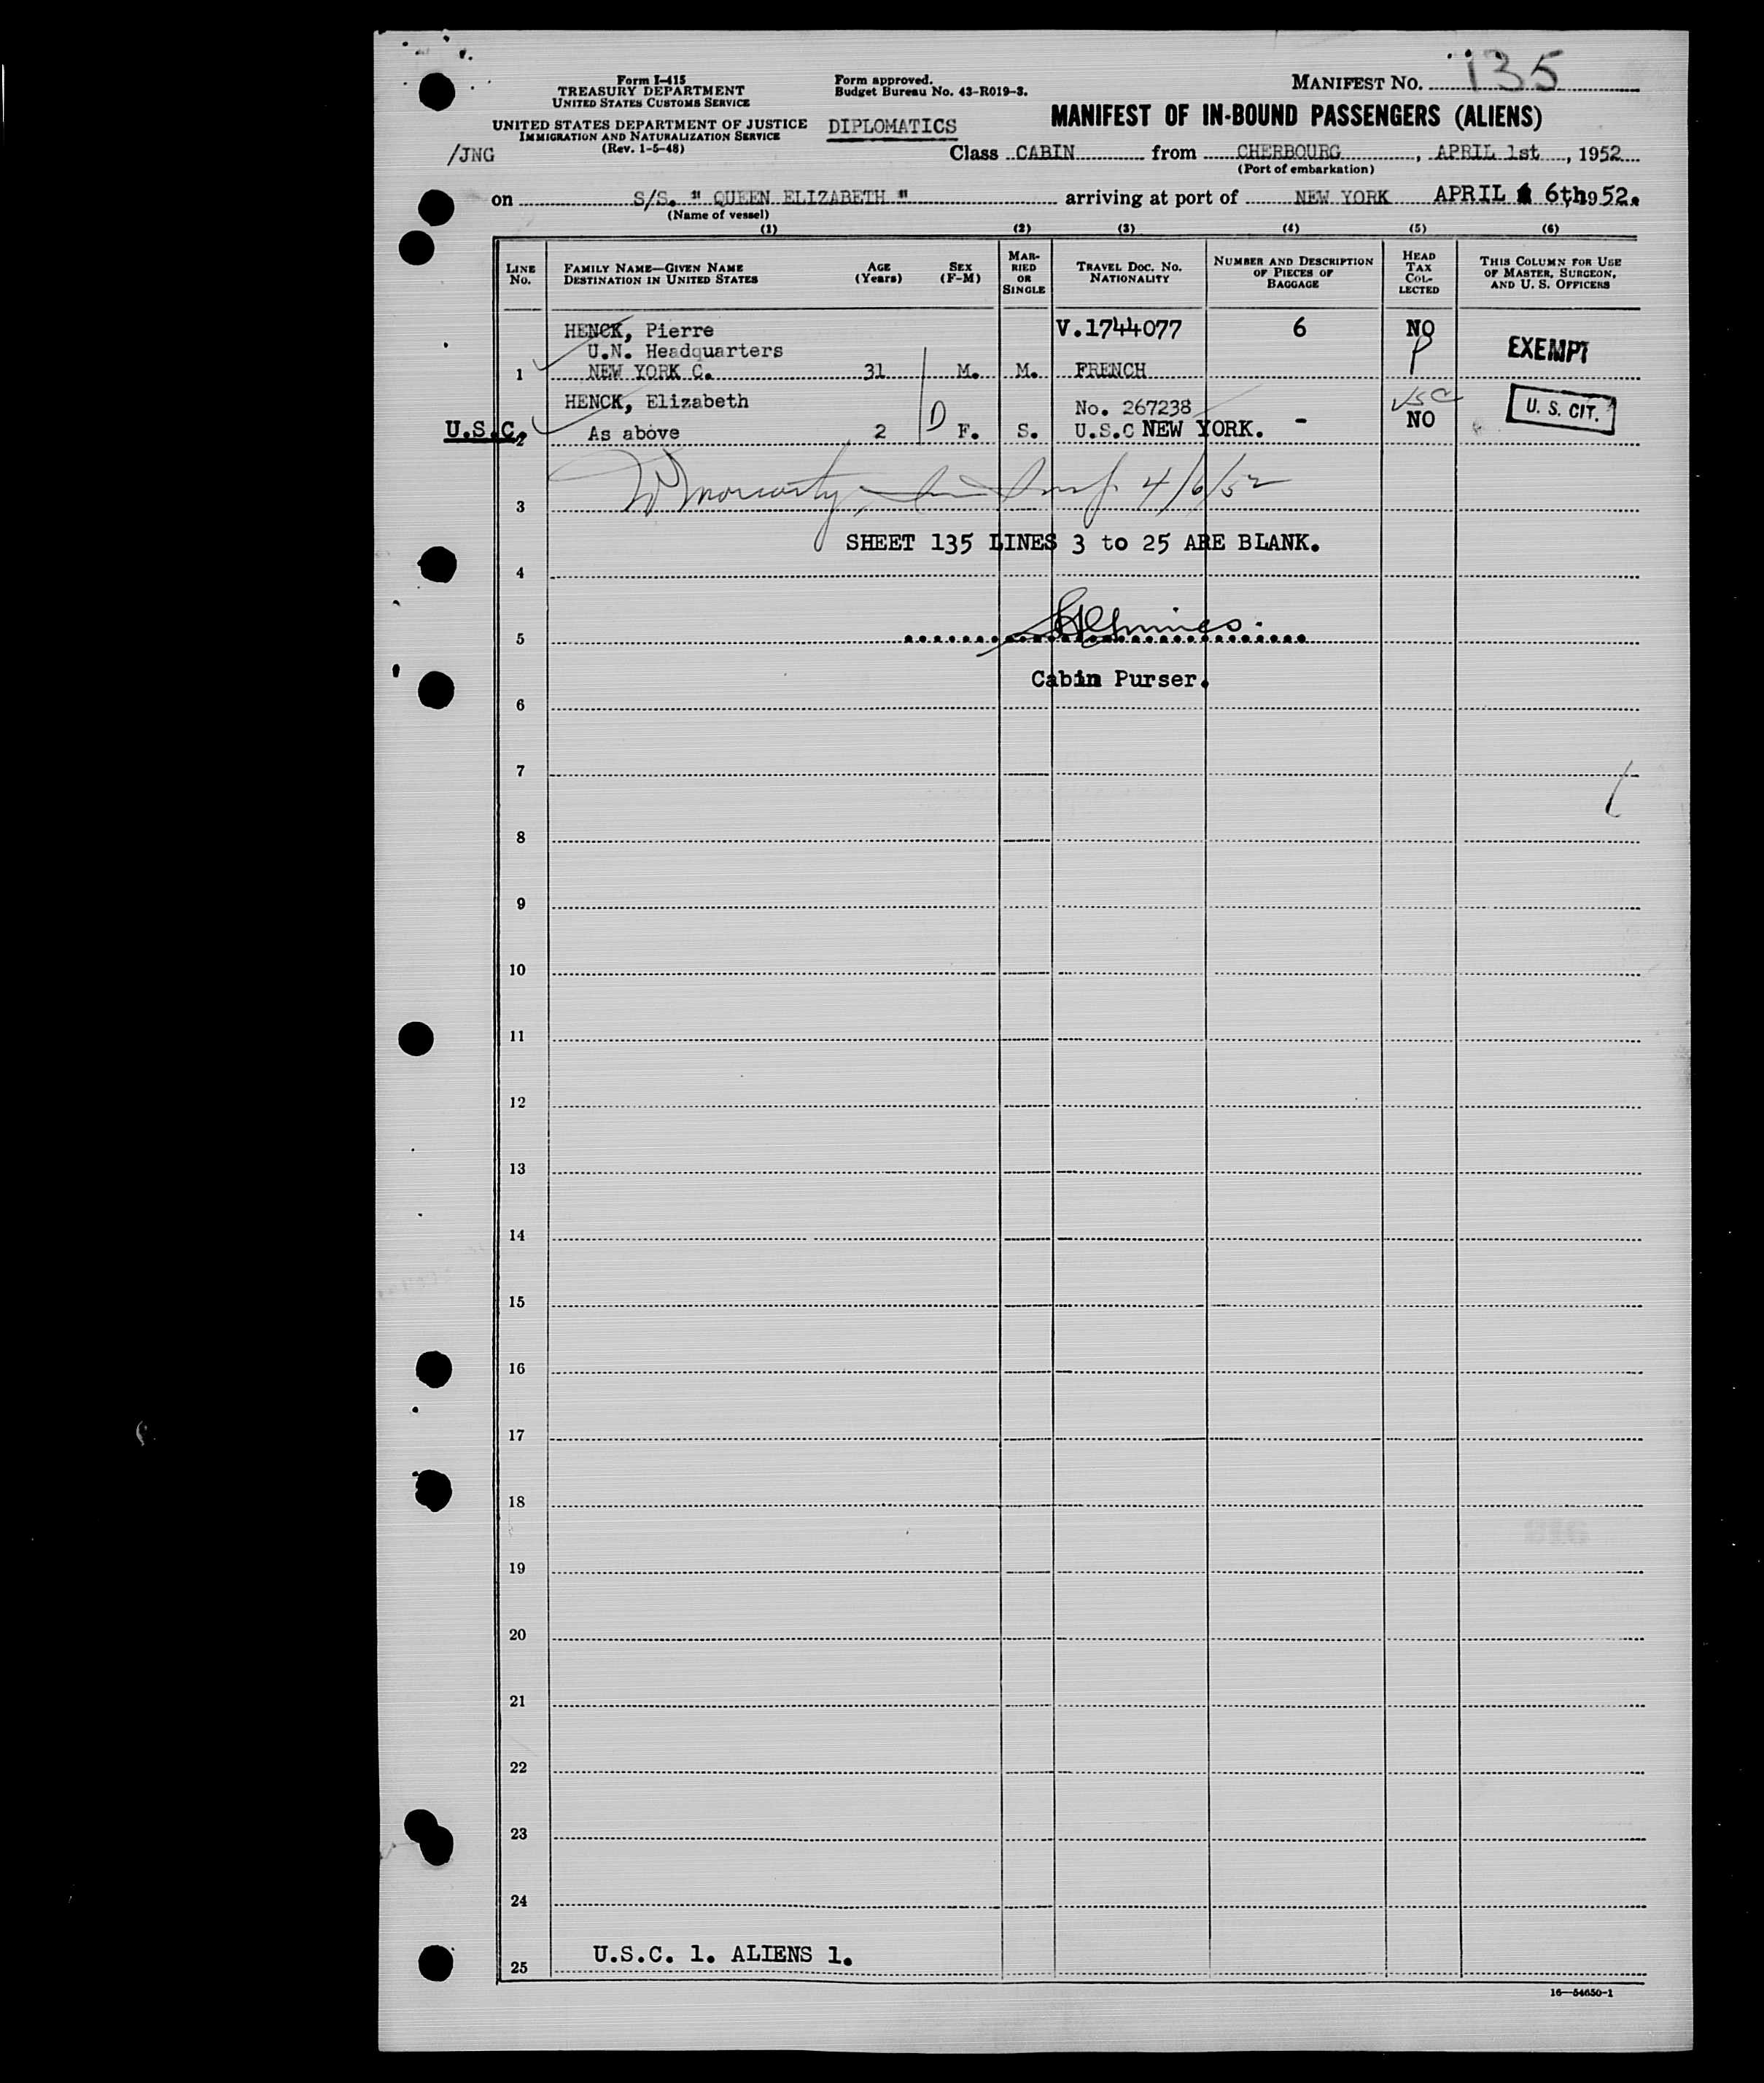 Form I-415
TREASURY DEPARTMENT
UNITED STATES CUSTOMS SERVICE
UNITED STATES DEPARTMENT OF JUSTICE
IMMIGRATION AND NATURALIZATION SERVICE
(Rev. 1-5-48)
/JNG
Form approved.
Budget Bureau No. 43-R019-3.
DIPLOMATICS
MANIFEST NO. 135
MANIFEST OF IN-BOUND PASSENGERS (ALIENS)
Class CABIN from CHERBOURG, APRIL 1st, 1952
(Port of embarkation)
on S/S. " QUEEN ELIZABETH " arriving at port of NEW YORK APRIL 6th 1952.
(Name of vessel)
(1) (2) (3) (4) (5) (6)
LINE No.
FAMILY NAME—GIVEN NAME
DESTINATION IN UNITED STATES
AGE (Years)
SEX (F-M)
MARRIED OR SINGLE
TRAVEL DOC. NO. NATIONALITY
NUMBER AND DESCRIPTION OF PIECES OF BAGGAGE
HEAD TAX COLLECTED
THIS COLUMN FOR USE OF MASTER, SURGEON, AND U. S. OFFICERS
HENCK, Pierre V.1744077 6 NO
U.N. Headquarters EXEMPT
1 NEW YORK C. 31 M. M. FRENCH P
HENCK, Elizabeth No. 267238 USC U. S. CIT.
U.S.C. 2 As above 2 D F. S. U.S.C NEW YORK. - NO
3 Moriarty 4/6/52
SHEET 135 LINES 3 to 25 ARE BLANK.
4
5
Cabin Purser.
6
7
8
9
10
11
12
13
14
15
16
17
18
19
20
21
22
23
24
25 U.S.C. 1. ALIENS 1.
16—54650-1